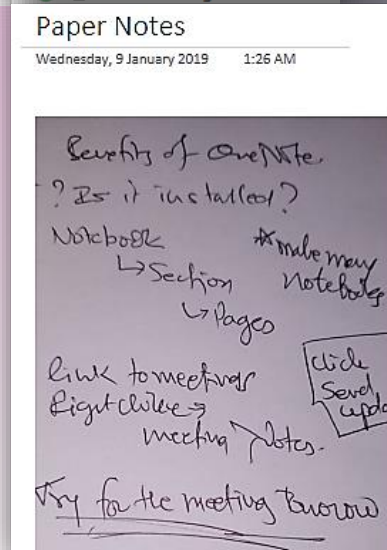 Paper Notes
Wednesday, 9 January 2019 1:26 AM
Benefits of OneNote.
? Is it installed?
Notebook
↳ Section
↳ Pages
* make many
Notebooks
link to meetings
Right click →
meeting Notes.
click
Send
Try for the meeting tomorrow